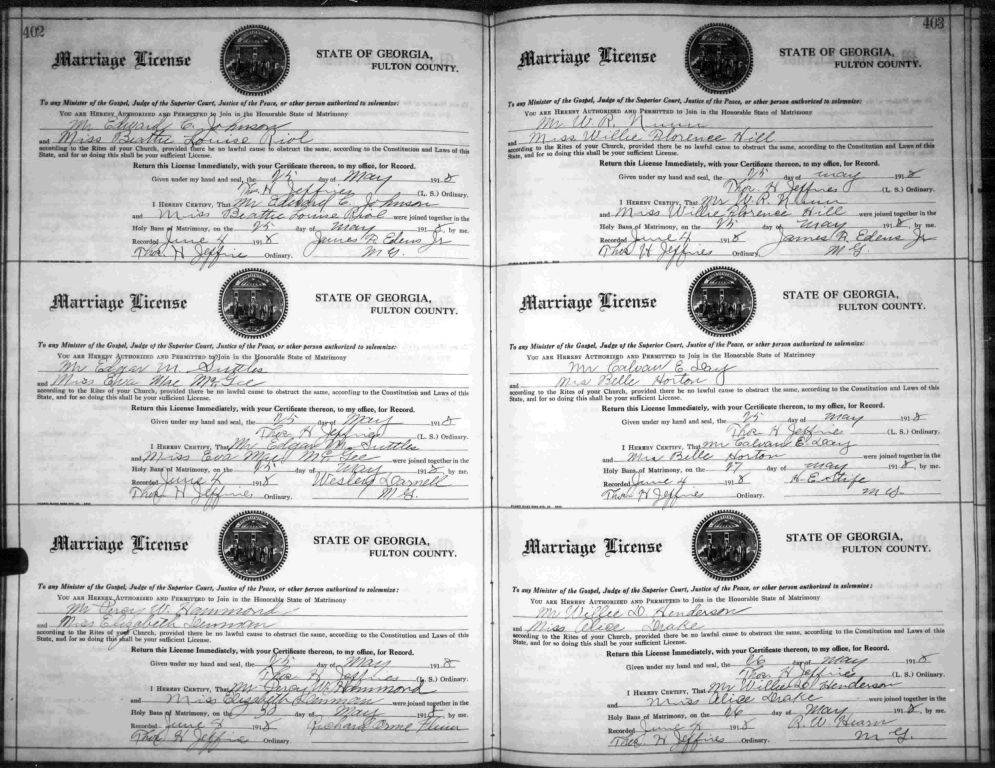 402
Marriage License
STATE OF GEORGIA,
FULTON COUNTY.
To any Minister of the Gospel, Judge of the Superior Court, Justice of the Peace, or other person authorized to solemnize:
YOU ARE HEREBY AUTHORIZED AND PERMITTED to Join in the Honorable State of Matrimony
Mr Edward C. Johnson
and Miss Beattie Louise Riol
according to the Rites of your Church, provided there be no lawful cause to obstruct the same, according to the Constitution and Laws of this
State, and for so doing this shall be your sufficient License.
Return this License Immediately, with your Certificate thereon, to my office, for Record.
Given under my hand and seal, the 25 day of May 1918
Thos H Jeffries (L. S.) Ordinary.
I HEREBY CERTIFY, That Mr Edward C. Johnson
and Miss Beattie Louise Riol were joined together in the
Holy Bans of Matrimony, on the 25 day of May 1918, by me.
Recorded June 4 1918 James R. Edens Jr
Thos H Jeffries Ordinary. M G.
Marriage License
STATE OF GEORGIA,
FULTON COUNTY.
To any Minister of the Gospel, Judge of the Superior Court, Justice of the Peace, or other person authorized to solemnize:
YOU ARE HEREBY AUTHORIZED AND PERMITTED to Join in the Honorable State of Matrimony
Mr Edgar M. Suttles
and Miss Eva Mae McGee
according to the Rites of your Church, provided there be no lawful cause to obstruct the same, according to the Constitution and Laws of this
State, and for so doing this shall be your sufficient License.
Return this License Immediately, with your Certificate thereon, to my office, for Record.
Given under my hand and seal, the 25 day of May 1918
Thos H Jeffries (L. S.) Ordinary.
I HEREBY CERTIFY, That Mr Edgar M Suttles
and Miss Eva Mae McGee were joined together in the
Holy Bans of Matrimony, on the 25 day of May 1918, by me.
Recorded June 4 1918 Wesley Darnell
Thos H Jeffries Ordinary. M G.
Marriage License
STATE OF GEORGIA,
FULTON COUNTY.
To any Minister of the Gospel, Judge of the Superior Court, Justice of the Peace, or other person authorized to solemnize:
YOU ARE HEREBY AUTHORIZED AND PERMITTED to Join in the Honorable State of Matrimony
Mr Percy W. Hammond
and Miss Elizabeth Denman
according to the Rites of your Church, provided there be no lawful cause to obstruct the same, according to the Constitution and Laws of this
State, and for so doing this shall be your sufficient License.
Return this License Immediately, with your Certificate thereon, to my office, for Record.
Given under my hand and seal, the 25 day of May 1918
Thos H Jeffries (L. S.) Ordinary.
I HEREBY CERTIFY, That Mr Percy W. Hammond
and Miss Elizabeth Denman were joined together in the
Holy Bans of Matrimony, on the day of May 1918, by me.
Recorded June 1918 Richard Orme Flinn
Thos H Jeffries Ordinary.
403
Marriage License
STATE OF GEORGIA,
FULTON COUNTY.
To any Minister of the Gospel, Judge of the Superior Court, Justice of the Peace, or other person authorized to solemnize:
YOU ARE HEREBY AUTHORIZED AND PERMITTED to Join in the Honorable State of Matrimony
Mr W. R. Nunn
and Miss Willie Florence Hill
according to the Rites of your Church, provided there be no lawful cause to obstruct the same, according to the Constitution and Laws of this
State, and for so doing this shall be your sufficient License.
Return this License Immediately, with your Certificate thereon, to my office, for Record.
Given under my hand and seal, the 25 day of May 1918
Thos H Jeffries (L. S.) Ordinary.
I HEREBY CERTIFY, That Mr W R Nunn
and Miss Willie Florence Hill were joined together in the
Holy Bans of Matrimony, on the 25 day of May 1918, by me.
Recorded June 4 1918 James R. Edens Jr
Thos H Jeffries Ordinary. M G
Marriage License
STATE OF GEORGIA,
FULTON COUNTY.
To any Minister of the Gospel, Judge of the Superior Court, Justice of the Peace, or other person authorized to solemnize:
YOU ARE HEREBY AUTHORIZED AND PERMITTED to Join in the Honorable State of Matrimony
Mr Calvan E. Day
and Mrs Belle Horton
according to the Rites of your Church, provided there be no lawful cause to obstruct the same, according to the Constitution and Laws of this
State, and for so doing this shall be your sufficient License.
Return this License Immediately, with your Certificate thereon, to my office, for Record.
Given under my hand and seal, the 25 day of May 1918
Thos H Jeffries (L. S.) Ordinary.
I HEREBY CERTIFY, That Mr Calvan E. Day
and Mrs Belle Horton were joined together in the
Holy Bans of Matrimony, on the 27 day of May 1918, by me.
Recorded June 4 1918
Thos H Jeffries Ordinary. M G.
Marriage License
STATE OF GEORGIA,
FULTON COUNTY.
To any Minister of the Gospel, Judge of the Superior Court, Justice of the Peace, or other person authorized to solemnize:
YOU ARE HEREBY AUTHORIZED AND PERMITTED to Join in the Honorable State of Matrimony
Mr Willie D. Henderson
and Miss Alice Drake
according to the Rites of your Church, provided there be no lawful cause to obstruct the same, according to the Constitution and Laws of this
State, and for so doing this shall be your sufficient License.
Return this License Immediately, with your Certificate thereon, to my office, for Record.
Given under my hand and seal, the 26 day of May 1918
Thos H Jeffries (L. S.) Ordinary.
I HEREBY CERTIFY, That Mr Willie D Henderson
and Miss Alice Drake were joined together in the
Holy Bans of Matrimony, on the 26 day of May 1918, by me.
Recorded June 1918 R. W. Hearn
Thos H Jeffries Ordinary. M G.